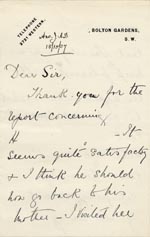 TELEPHONE
2791 WESTERN.
, BOLTON GARDENS,
S.W.
18/10/07
Dear Sir,
Thank you for the
report concerning
H It
seems quite satisfactory
& I think he should
now go back to his
mother – I visited her